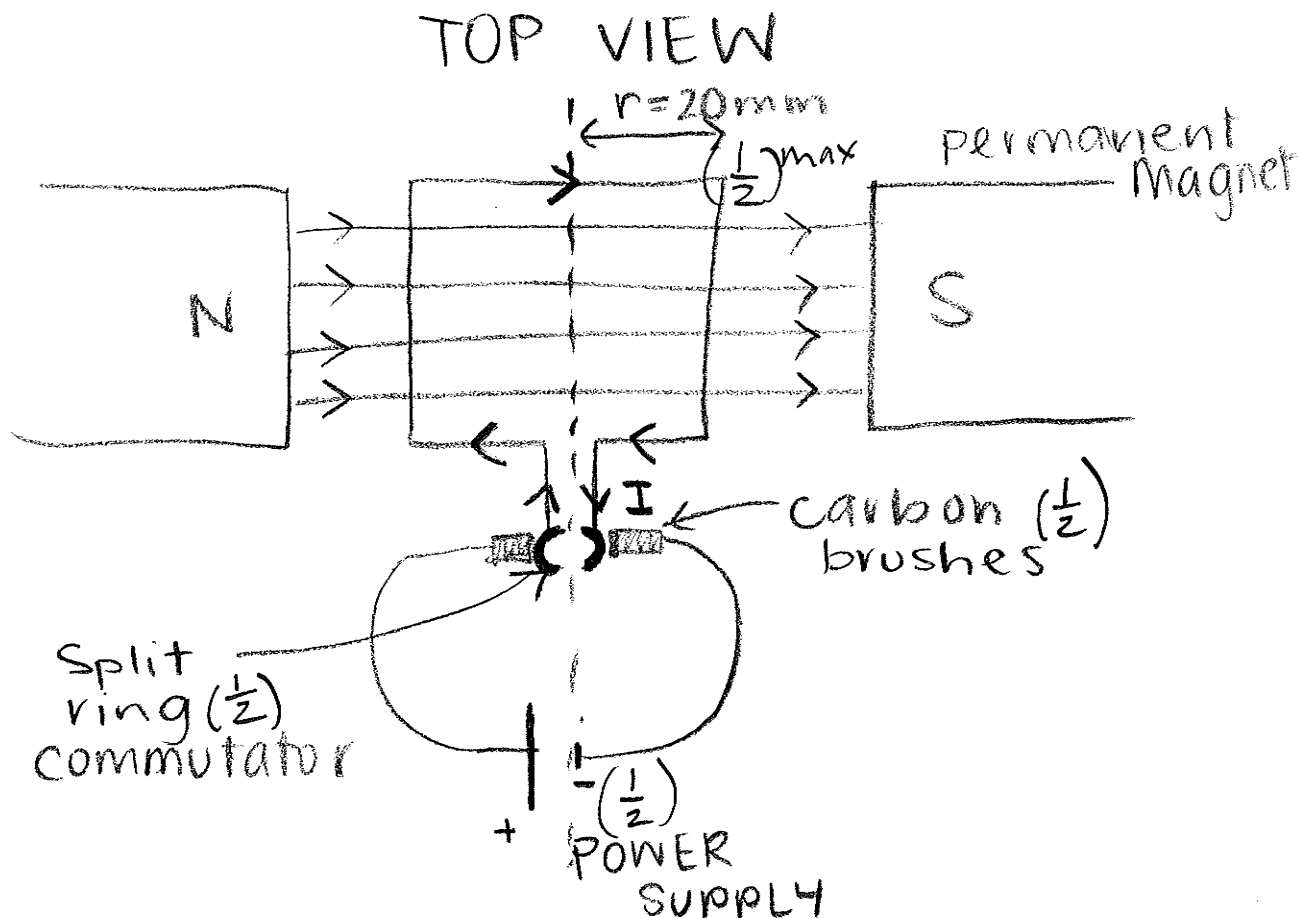 TOP VIEW
r=20mm
(1/2) max
permanent
Magnet
N
S
I
carbon (1/2)
brushes
Split
ring (1/2)
commutator
+
- (1/2)
POWER
SUPPLY